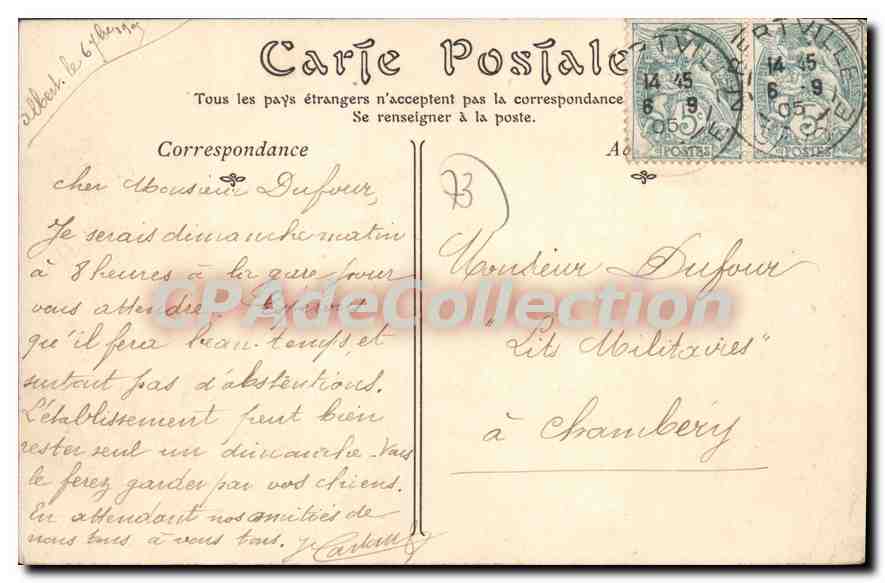 Albert. le 6 7bre 1905
Carte Postale
Tous les pays étrangers n'acceptent pas la correspondance
Se renseigner à la poste.
Correspondance
RTVILLE
14 45
6 9
05
5c
POSTES
RTVILLE
14 45
6 9
05
5c
POSTES
73
Cher Monsieur Dufour,
Je serais dimanche matin
à 8 heures à la gare pour
vous attendre. Espérons
qu'il fera beau temps, et
surtout pas d'abstentions.
L'établissement peut bien
rester seul un dimanche. Vous
le ferez garder par vos chiens.
En attendant nos amitiés de
nous tous à vous tous.
Monsieur Dufour
"Lits Militaires"
à Chambéry
CPAdeCollection.com